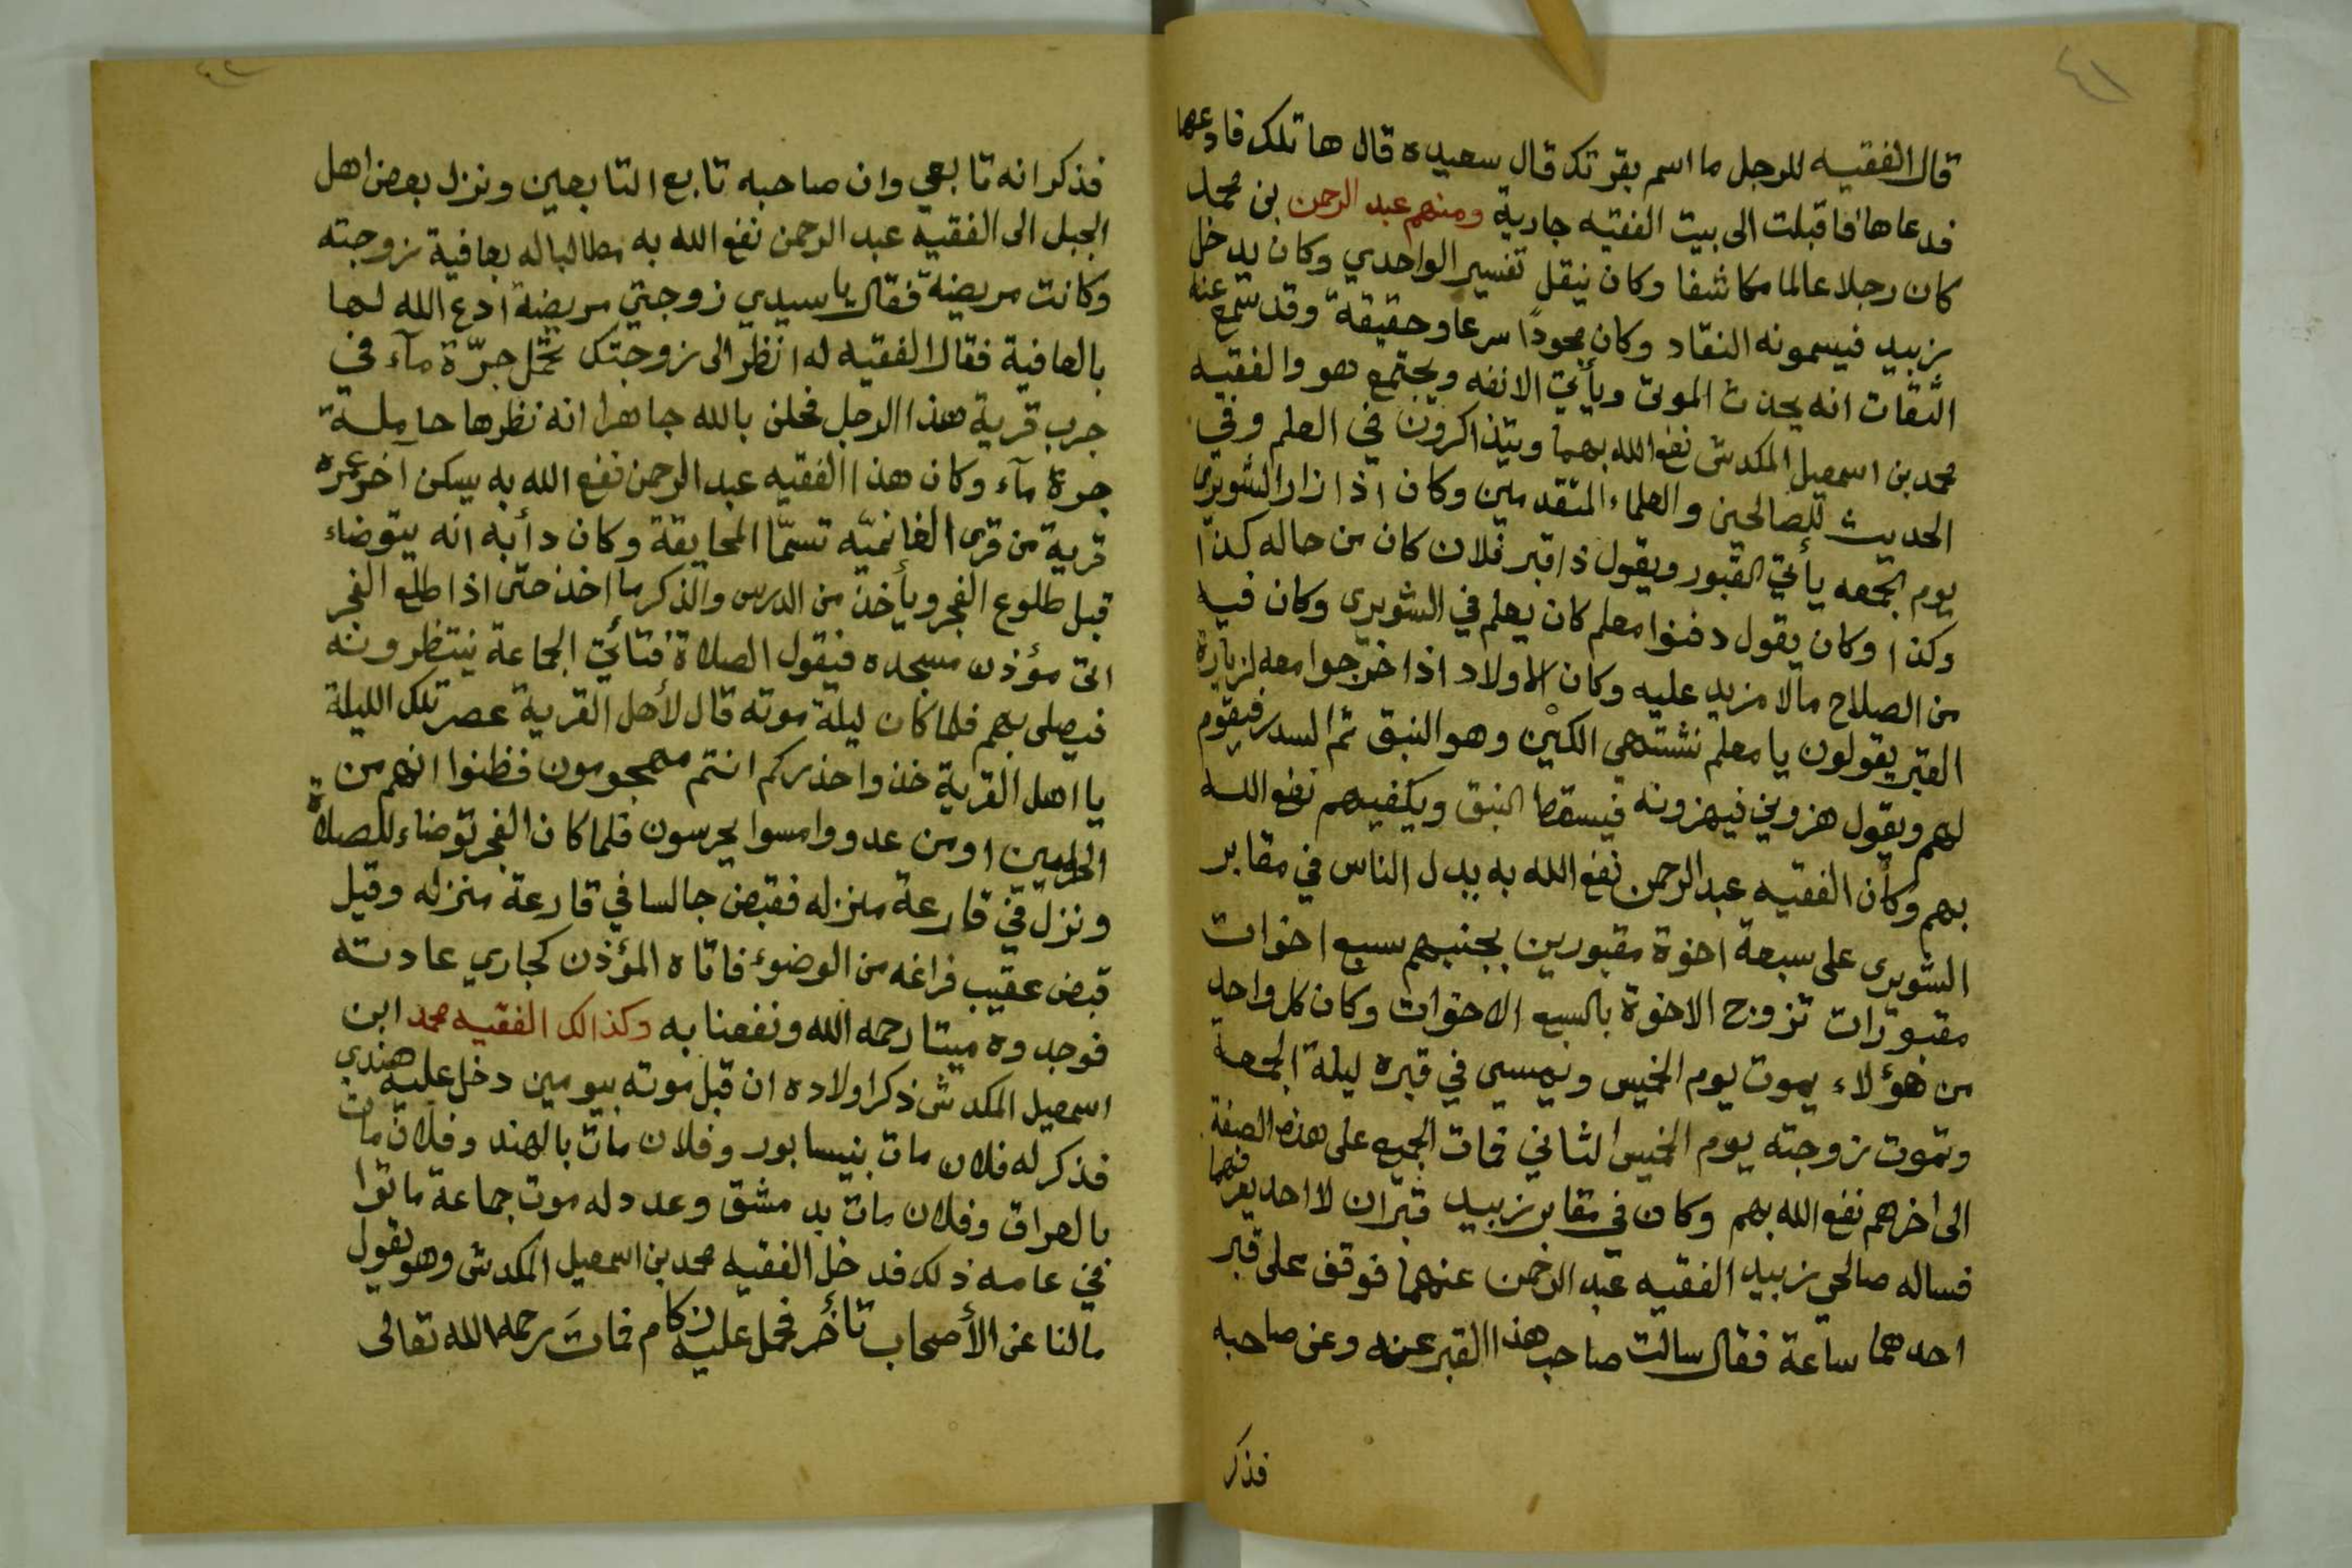 ٤١
قال الفقيه للرجل ما اسم بقرتك قال سعيده قال ها تلك فادعها
فدعاها فاقبلت الى بيت الفقيه جارية ومنهم عبد الرحمن بن محمد
كان رجلا عالما مكاشفا وكان ينقل تفسير الواحدي وكان يدخل
زبيد فيسمونه النقاد وكان مجودًا سرعا وحقيقة وقد سمع عنه
الثقات انه يحدث الموتى ويأتي الانفه ويجتمع هو والفقيه
محمد بن اسمعيل المكدش نفع الله بهما ويتذاكرون في العلم وفي
الحديث للصالحين والعلماء المتقدمين وكان اذا زار الشويرى
يوم الجمعه يأتي القبور ويقول ذا قبر فلان كان من حاله كذا
وكذا وكان يقول دفنوا معلم كان يعلم في الشويرى وكان فيه
من الصلاح مالا مزيد عليه وكان الاولاد اذا خرجوا معه لزيارة
القبر يقولون يا معلم نشتهي الكين وهو النبق ثم السدر فيقوم
لهم ويقول هزوني فيهزونه فيسقط النبق ويكفيهم نفع الله
بهم وكان الفقيه عبد الرحمن نفع الله به يدل الناس في مقابر
الشويرى على سبعة اخوة مقبورين بجنبهم سبع اخوات
مقبورات تزوج الاخوة بالسبع الاخوات وكان كل واحد
من هؤلاء يموت يوم الخميس ويمسي في قبره ليلة الجمعة
وتموت زوجته يوم الخميس الثاني فمات الجميع على هذه الصفة
الى اخرهم نفع الله بهم وكان في مقابر زبيد قبران لا احد يعرفهما
فساله صالحي زبيد الفقيه عبد الرحمن عنهما فوقف على قبر
احدهما ساعة فقال سالت صاحب هذا القبر عنه وعن صاحبه
فذكر
فذكر انه تابعي وان صاحبه تابع التابعين ونزل بعض اهل
الجبل الى الفقيه عبد الرحمن نفع الله به مطالبا له بعافية زوجته
وكانت مريضة فقال يا سيدي زوجتي مريضة ادع الله لها
بالعافية فقال الفقيه له انظر الى زوجتك تحمل جرّة مآء في
جرب قرية هذا الرجل فحلف بالله جاهرا انه نظرها حاملة
جرة مآء وكان هذا الفقيه عبد الرحمن نفع الله به يسكن اخر عمره
قرية من قرى الغانميّه تسمّا المحايقة وكان دأبه انه يتوضاء
قبل طلوع الفجر ويأخذ من الدرس والذكر ما اخذ حتى اذا طلع الفجر
اتى مؤذن مسجده فيقول الصلاة فتائتي الجماعة ينتظرونه
فيصلى بهم فلما كان ليلة موته قال لأهل القرية عصر تلك الليلة
يا اهل القرية خذوا حذركم انتم مهجومون فظنوا انهم من
او من عدو وامسوا يحرسون فلما كان الفجر توضاء للصلاة
ونزل في قارعة منزله فقبض جالسا في قارعة منزله وقيل
قبض عقيب فراغه من الوضوء فاتاه المؤذن كجاري عادته
فوجدوه ميتا رحمه الله ونفعنا به وكذالك الفقيه محمد ابن
اسمعيل المكدش ذكر اولاده ان قبل موته بيومين دخل عليه هندي
فذكر له فلان مات بنيسابور وفلان مات بالهند وفلان مات
بالعراق وفلان مات بدمشق وعدد له موت جماعة ماتوا
في عامه ذلك فدخل الفقيه محمد بن اسمعيل المكدش وهو يقول
مالنا عن الأصحاب تأخر فحمل عليه زكام فمات رحمه الله تعالى